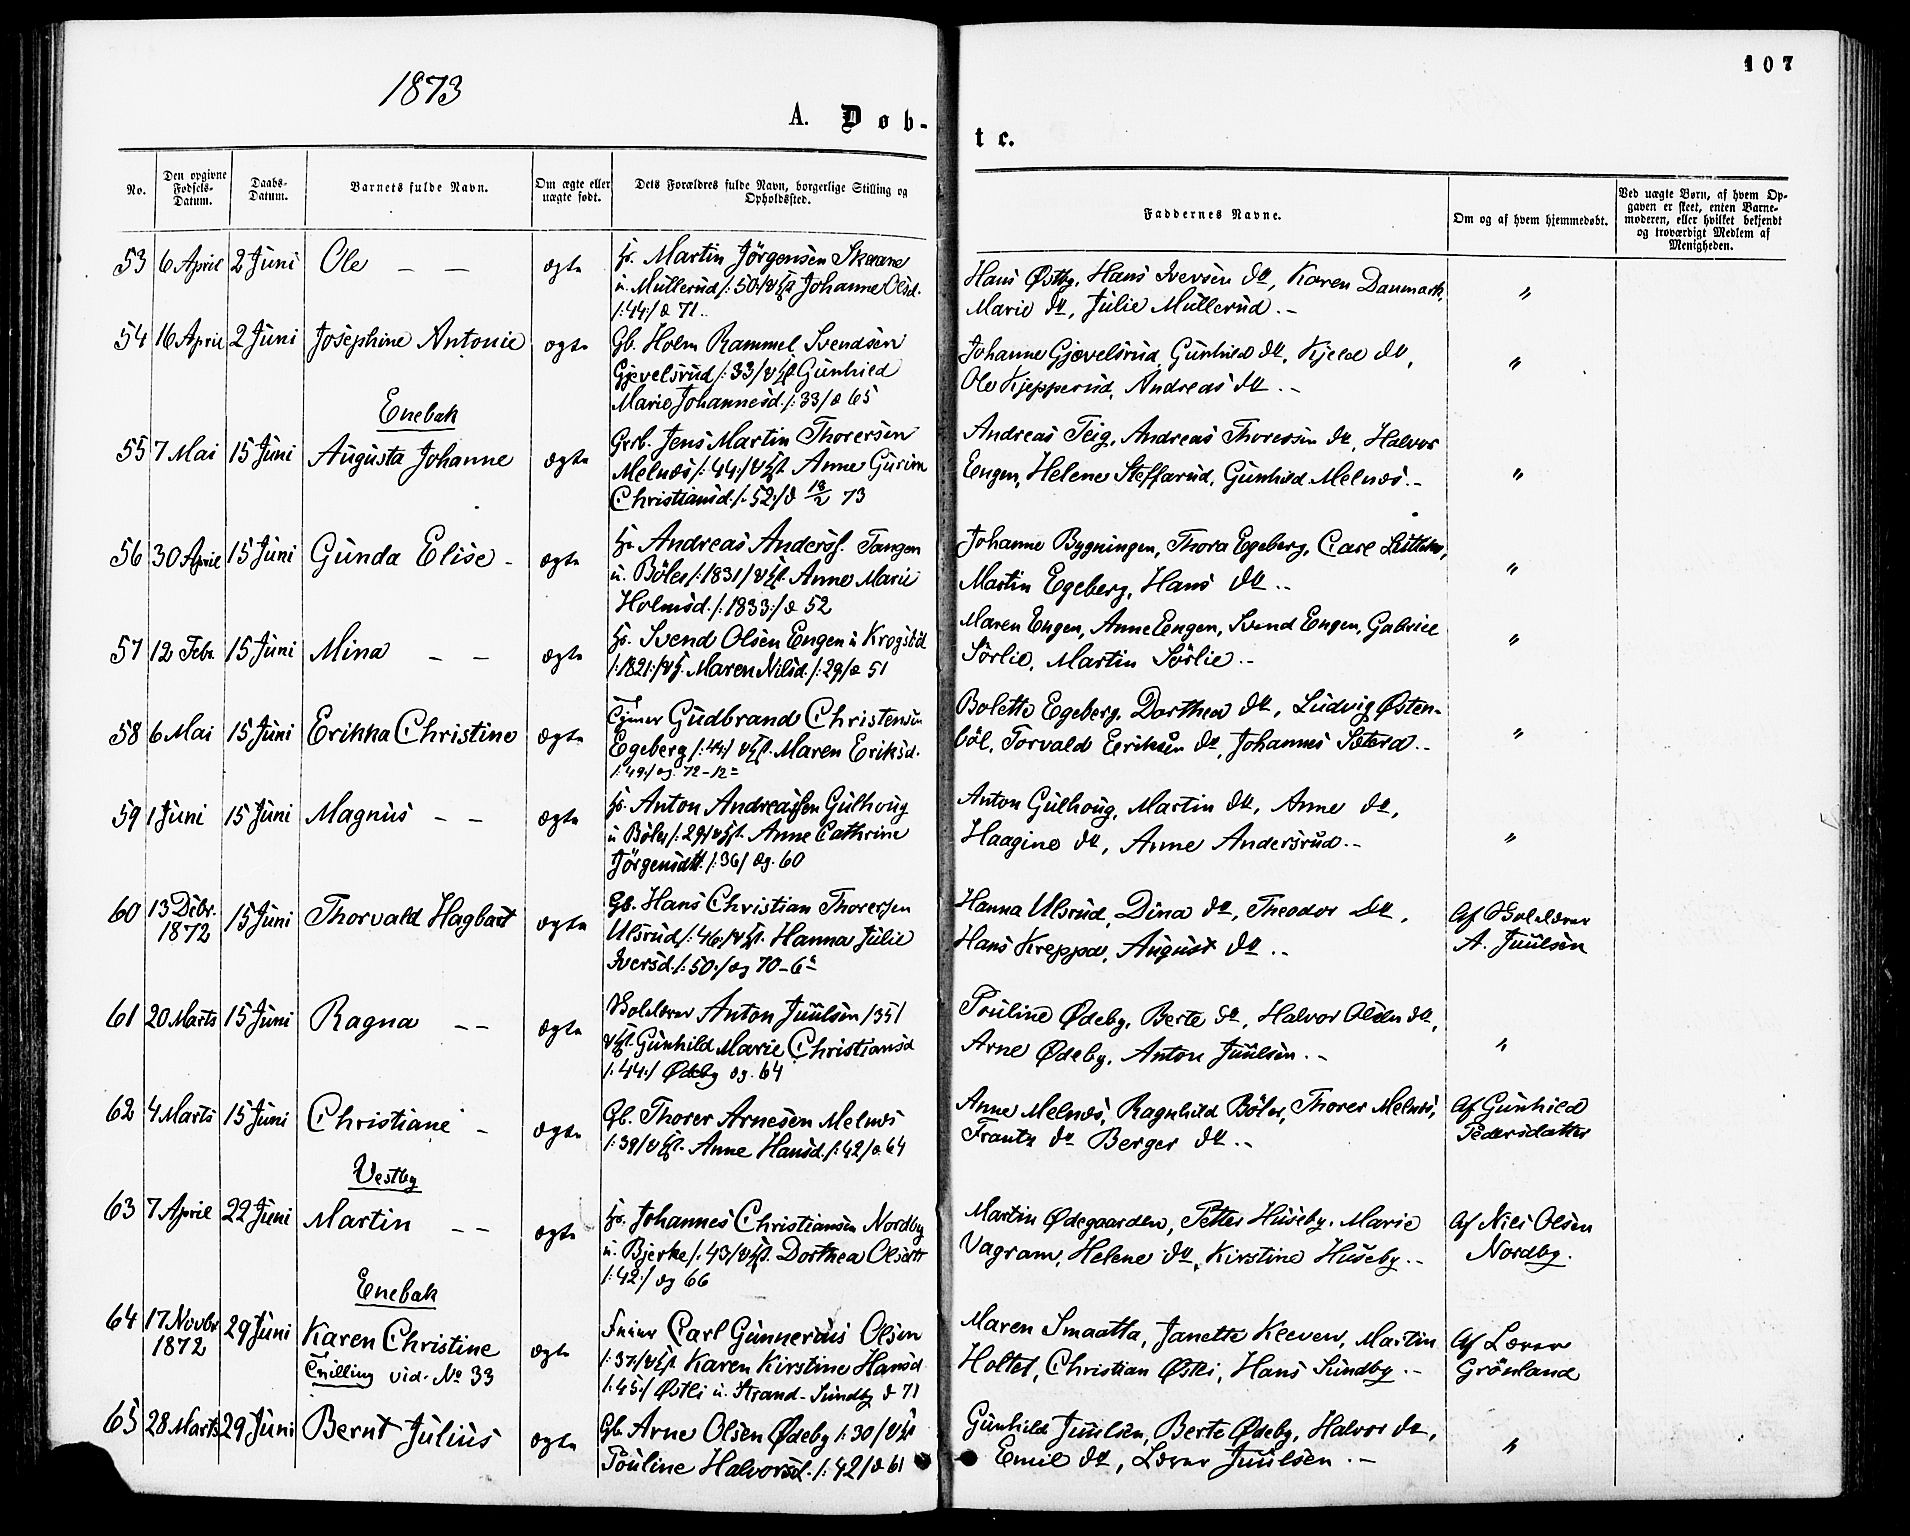 1873
107
A. Døb-
te.
No.
Den opgivne Fødsels-Datum.
Daabs-Datum.
Barnets fulde Navn.
Om ægte eller uægte født.
Dets Forældres fulde Navn, borgerlige Stilling og Opholdssted.
Faddernes Navne.
Om og af hvem hjemmedøbt.
Ved uægte Børn, af hvem Opgaven er skeet, enten Barnemoderen, eller hvilket bekjendt og troværdigt Medlem af Menigheden.
53 6 April 2 Juni Ole – – ægte
Martin Jörgensen
u. Müllerud /:50/ Johanne Olsd.
/:44:/ æ 71..
Hans Østby, Hans Iversen do, Karen Danmark,
Marie do, Julie Müllerud. –
"
54 16 April 2 Juni Josephine Antonie ægte
Gb. Holm Rammel Svendsen
Gjevelsrud /:33/ Gunhild
Marie Johannesd. /:33/ æ 65
Johanne Gjævelsrud, Gunhild do, Kjeld do,
Ole Kjepperud, Andreas do. –
"
Enebak
55 7 Mai 15 Juni Augusta Johanne ægte
Jens Martin Thorersen
Melnæs /:44:/ Anne
Christiansd. /:52:/ 18/2 73
Andreas Teig, Andreas Thoresen do, Halvor
Engen, Helene Steffarud, Gunhild Melnæs. –
"
56 30 April 15 Juni Gunda Elise – ægte
Andreas Anders. Tangen
u. Böler /:1831/ Anne Marie
Holmsd. /:1833:/ æ 52
Johanne Bygningen, Thora Egeberg, Carl
Martin Egeberg, Hans do. –
"
57 12 Febr. 15 Juni Mina – – ægte
Svend Olsen Engen u Krogsböl
/:1821:/ Maren Nilsd. /:29/ æ 51
Maren Engen, Anne Engen, Svend Engen, Gabriel
Sörlie, Martin Sörlie. –
"
58 6 Mai 15 Juni Erikka Christine ægte
Gudbrand Christensen
Egeberg /:44/ Maren Eriksd.
/:49:/ æg. 72–12
Bolette Egeberg, Dorthea do, Ludvig Østen-
böl, Torvald Eriksen do, Johannes Sætera. –
"
59 1 Juni 15 Juni Magnus – – ægte
Anton Andreassen Gulhoug
u Böler /:29/ Anne Cathrine
Jörgensdtt. /:36/ æg. 60
Anton Gulhoug, Martin do, Anne do,
Haagine do, Anne Andersrud. –
"
60 13 Debr. 1872 15 Juni Thorvald Hagbart ægte
Gb. Hans Christian Thorersen
Ulsrud /:46/ Hanna Julie
Iversd. /:50:/ æg 70–6
Hanna Ulsrud, Dina do, Theodor do,
Hans Kreppa, August do. –
Af Skolelærer
A. Juulsen
61 20 Marts 15 Juni Ragna – – ægte
Skolelærer Anton Juulsen /35/
Gunhild Marie Christiansd
/:44:/ Ødeby æg. 64
Pouline Ødeby, Berte do, Halvor Olsen do,
Arne Ødeby, Anton Juulsen. –
"
62 4 Marts 15 Juni Christiane – ægte
Gb. Thorer Arnesen Melnæs
/:39/ Anne Hansd. /:42/ æ 64
Anne Melnæs, Ragnhild Böler, Thorer Melnæs,
Frantz do Berger do. –
Af Gunhild
Pedersdatter
Vestby
63 7 April 22 Juni Martin – – ægte
Johannes Christiansen Nordby
u. Bjerke /:43/ Dorthea Olsdtt
/:42:/ æg 66
Martin Ødegaarden, Petter Huseby, Marie
Vagram, Helene do, Kirstine Huseby. –
Af Niels Olsen
Nordby.
Enebak
64 17 Novbr 1872 29 Juni Karen Christine ægte
Tvilling vid. No 33
Carl Gunnerius Olsen
/:37/ Karen Kirstine Hansd
/:45:/ Østli u. Strand–Sundby æ 71
Maren Smaatta, Janette Kleven, Martin
Holtet, Christian Østli, Hans Sundby. –
Af Lærer
Grönland
65 28 Marts 29 Juni Bernt Julius ægte
Gb. Arne Olsen Ødeby /:30/
Pouline Halvorsd. /:42/ æ 61
Gunhild Juulsen, Berte Ødeby, Halvor do,
Emil do, Lærer Juulsen. –
"